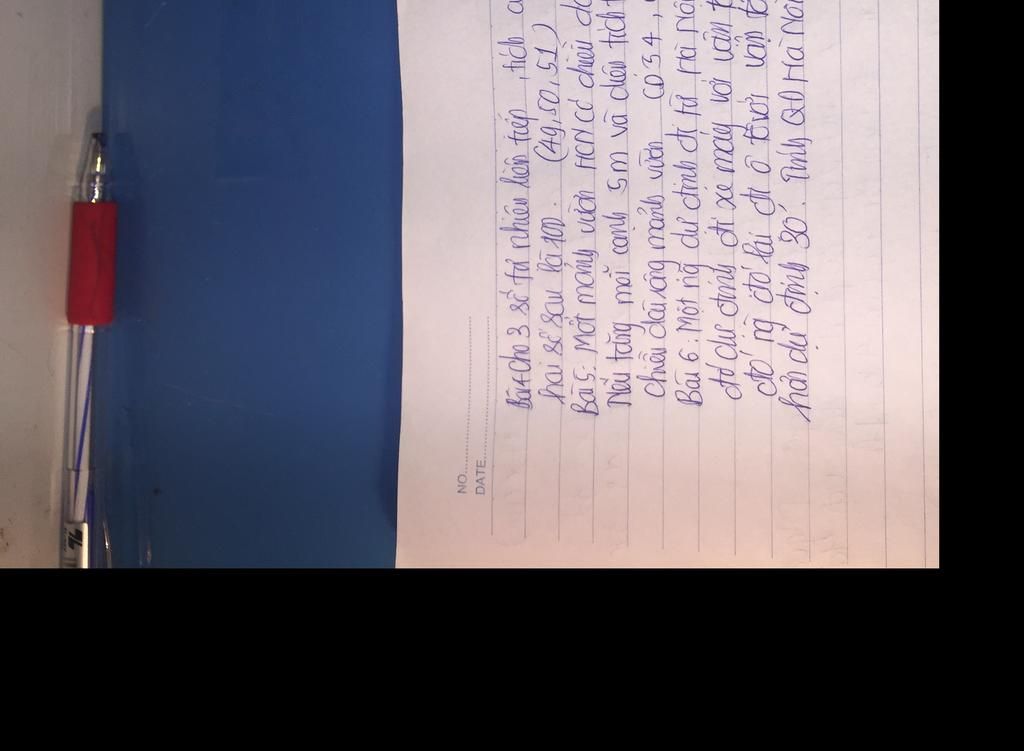 NO.
DATE
Bài 4 Cho 3 số tự nhiên liên tiếp, tích
hai số sau là 100. (49, 50, 51)
Bài 5: Một mảnh vườn HCN có chiều
Nếu tăng mỗi cạnh 5m và diện tích
chiều dài rộng mảnh vườn (34,
Bài 6: Một ng dự định đi từ Hà
đó dự định đi xe máy với vận
đó ng đó lại đi ô tô với vận
hơn dự định 30'. Tính QĐ Hà